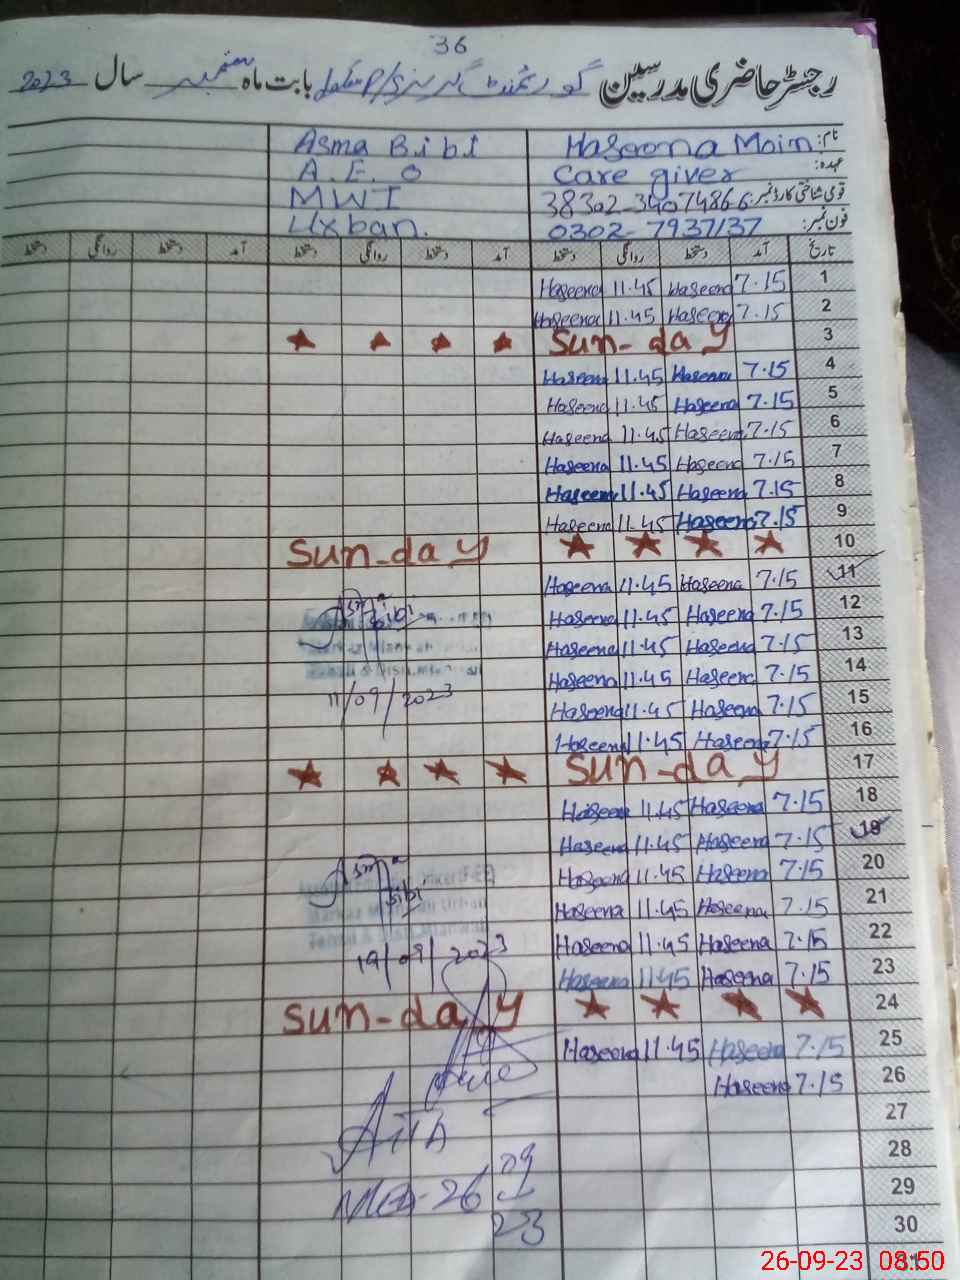 36
رجسٹر حاضری مدرسین گورنمنٹ گرلز P/S بابت ماہ ستمبر سال 2023
نام: Haseena Moin Asma Bibi
عہدہ: Care giver A.E.O
قومی شناختی کارڈ نمبر: 38302-3407486-6 MWI
فون نمبر: 0302-7937137 Urban.
تاریخ آمد دستخط روانگی دستخط آمد دستخط روانگی دستخط آمد دستخط روانگی دستخط
1 7.15 Haseena 11.45 Haseena
2 7.15 Haseena 11.45 Haseena
3 Sun-day
4 7.15 Haseena 11.45 Haseena
5 7.15 Haseena 11.45 Haseena
6 7.15 Haseena 11.45 Haseena
7 7.15 Haseena 11.45 Haseena
8 7.15 Haseena 11.45 Haseena
9 7.15 Haseena 11.45 Haseena
10 Sun-day
11 7.15 Haseena 11.45 Haseena
12 7.15 Haseena 11.45 Haseena Asma Bibi
13 7.15 Haseena 11.45 Haseena
14 7.15 Haseena 11.45 Haseena
15 7.15 Haseena 11.45 Haseena 11/09/2023
16 7.15 Haseena 11.45 Haseena
17 Sun-day
18 7.15 Haseena 11.45 Haseena
19 7.15 Haseena 11.45 Haseena
20 7.15 Haseena 11.45 Haseena Asma Bibi
21 7.15 Haseena 11.45 Haseena
22 7.15 Haseena 11.45 Haseena
23 7.15 Haseena 11.45 Haseena 19/09/2023
24 Sun-day
25 7.15 Haseena 11.45 Haseena
26 7.15 Haseena
27
28
29 26 09
30 23
31
26-09-23 08:50